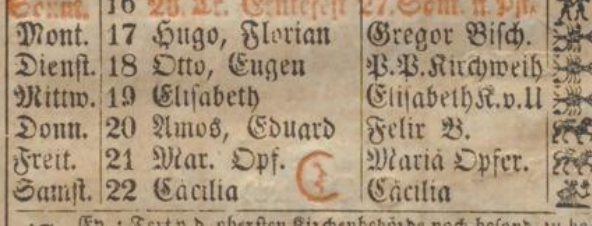 Sonnt. 16 Erntefest 27. Sont. n. Pfi.
Mont. 17 Hugo, Florian Gregor Bisch.
Dienst. 18 Otto, Eugen P.P. Kirchweih
Mittw. 19 Elisabeth Elisabeth K. v. U
Donn. 20 Amos, Eduard Felix B.
Freit. 21 Mar. Opf. Mariä Opfer.
Samst. 22 Cäcilia Cäcilia